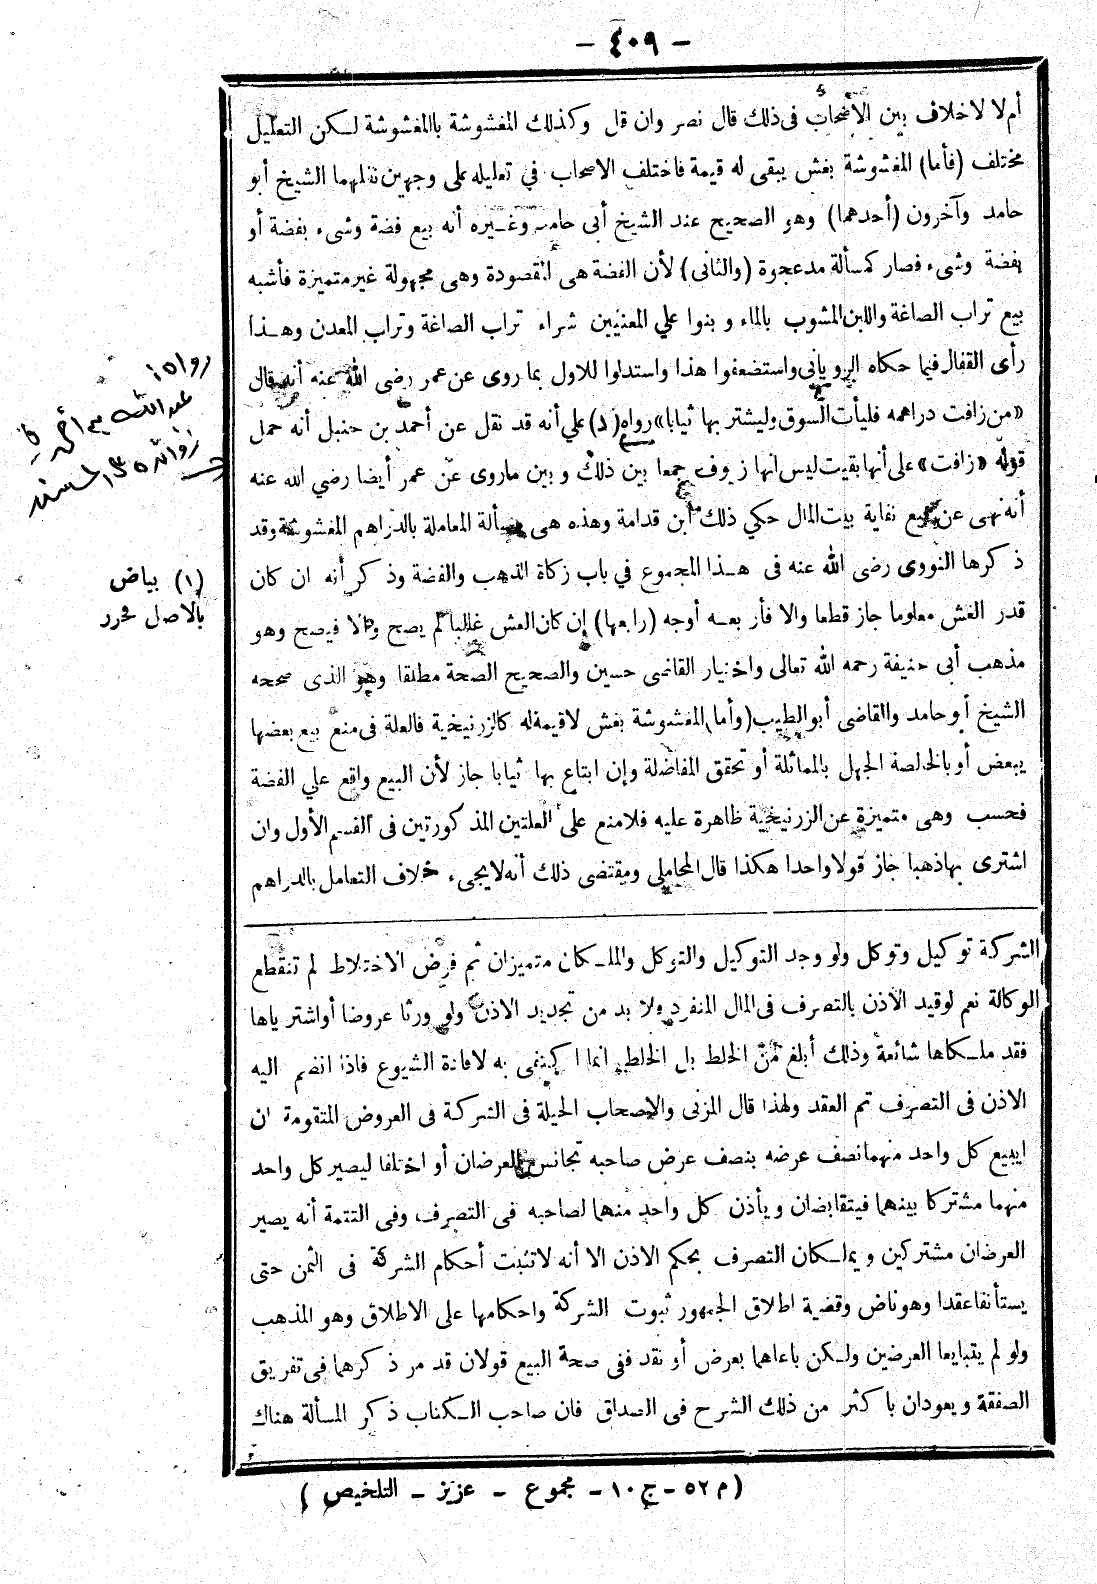 - ٤٠٩ -
أم لا لا خلاف بين الأصحاب فى ذلك قال نصر وان قل وكذلك المغشوشة بالمغشوشة لكن التعليل
مختلف (فأما) المغشوشة بغش يبقى له قيمة فاختلف الاصحاب فى تعليله على وجهين نقلهما الشيخ أبو
حامد وآخرون (أحدهما) وهو الصحيح عند الشيخ أبى حامد وغيره أنه بيع فضة وشىء بفضة أو
بفضة وشىء فصار كمسألة مدعجوة (والثانى) لأن الفضة هى المقصودة وهى مجهولة غير متميزة فأشبه
بيع تراب الصاغة واللبن المشوب بالماء وبنوا علي المعنيين شراء تراب الصاغة وتراب المعدن وهذا
رأى القفال فيما حكاه الرويانى واستضعفوا هذا واستدلوا للاول بما روى عن عمر رضى الله عنه أنه قال
«من زافت دراهمه فليأت السوق وليشتر بها ثيابا» رواه (١) علي أنه قد نقل عن أحمد بن حنبل أنه حمل
قوله «زافت» على أنها بقيت ليس انها زيوف جمعا بين ذلك وبين ماروى عن عمر أيضا رضي الله عنه
أنه نهى عن بيع نفاية بيت المال حكي ذلك ابن قدامة وهذه هى مسألة المعاملة بالدراهم المغشوشة وقد
ذكرها النووى رضى الله عنه فى هذا المجموع في باب زكاة الذهب والفضة وذكر أنه ان كان
قدر الغش معلوما جاز قطعا والا فأربعه أوجه (رابعها) إن كان الغش غالبا لم يصح والا فيصح وهو
مذهب أبى حنيفة رحمه الله تعالى واختيار القاضى حسين والصحيح الصحة مطلقا وهو الذى صححه
الشيخ أبو حامد والقاضى أبو الطيب (وأما) المغشوشة بغش لا قيمة له كالزرنيخية فالعلة فى منع بيع بعضها
ببعض أو بالخالصة الجهل بالمماثلة أو تحقق المفاضلة وإن ابتاع بها ثيابا جاز لأن البيع واقع علي الفضة
فحسب وهى متميزة عن الزرنيخية ظاهرة عليه فلا منع على العلتين المذكورتين فى القسم الأول وان
اشترى بها ذهبا جاز قولا واحدا هكذا قال المحاملى ومقتضى ذلك أنه لا يجىء خلاف التعامل بالدراهم
الشركة توكيل وتوكل ولو وجد التوكيل والتوكل والملكان متميزان ثم فرض الاختلاط لم تنقطع
الوكالة نعم لو قيد الاذن بالتصرف فى المال المنفرد ولا بد من تجديد الاذن ولو ورثا عروضا أو اشترياها
فقد ملكاها شائعة وذلك أبلغ من الخلط بل الخلط انما اكتفى به لافادة الشيوع فاذا انضم اليه
الاذن فى التصرف تم العقد ولهذا قال المزنى والاصحاب الحيلة فى الشركة فى العروض المتقومة ان
ايبيع كل واحد منهما نصف عرضه بنصف عرض صاحبه تجانس العرضان أو اختلفا ليصير كل واحد
منهما مشتركا بينهما فيتقابضان ويأذن كل واحد منهما لصاحبه فى التصرف وفى التتمة أنه يصير
العرضان مشتركين ويملكان التصرف بحكم الاذن الا أنه لا تثبت أحكام الشركة فى الثمن حتى
يستأنفا عقدا وهو ناض وقضية اطلاق الجمهور ثبوت الشركة واحكامها على الاطلاق وهو المذهب
ولو لم يتبايعا العرضين ولكن باعاهما بعرض أو نقد ففى صحة البيع قولان قد مر ذكرهما فى تفريق
الصفقة ويعودان باكثر من ذلك الشرح فى الصداق فان صاحب الكتاب ذكر المسألة هناك
(م ٥٢ - ج ١٠ - مجموع - عزيز - التلخيص)
رواه
عبد الله بن أحمد
(١) بياض
بالاصل فحرر